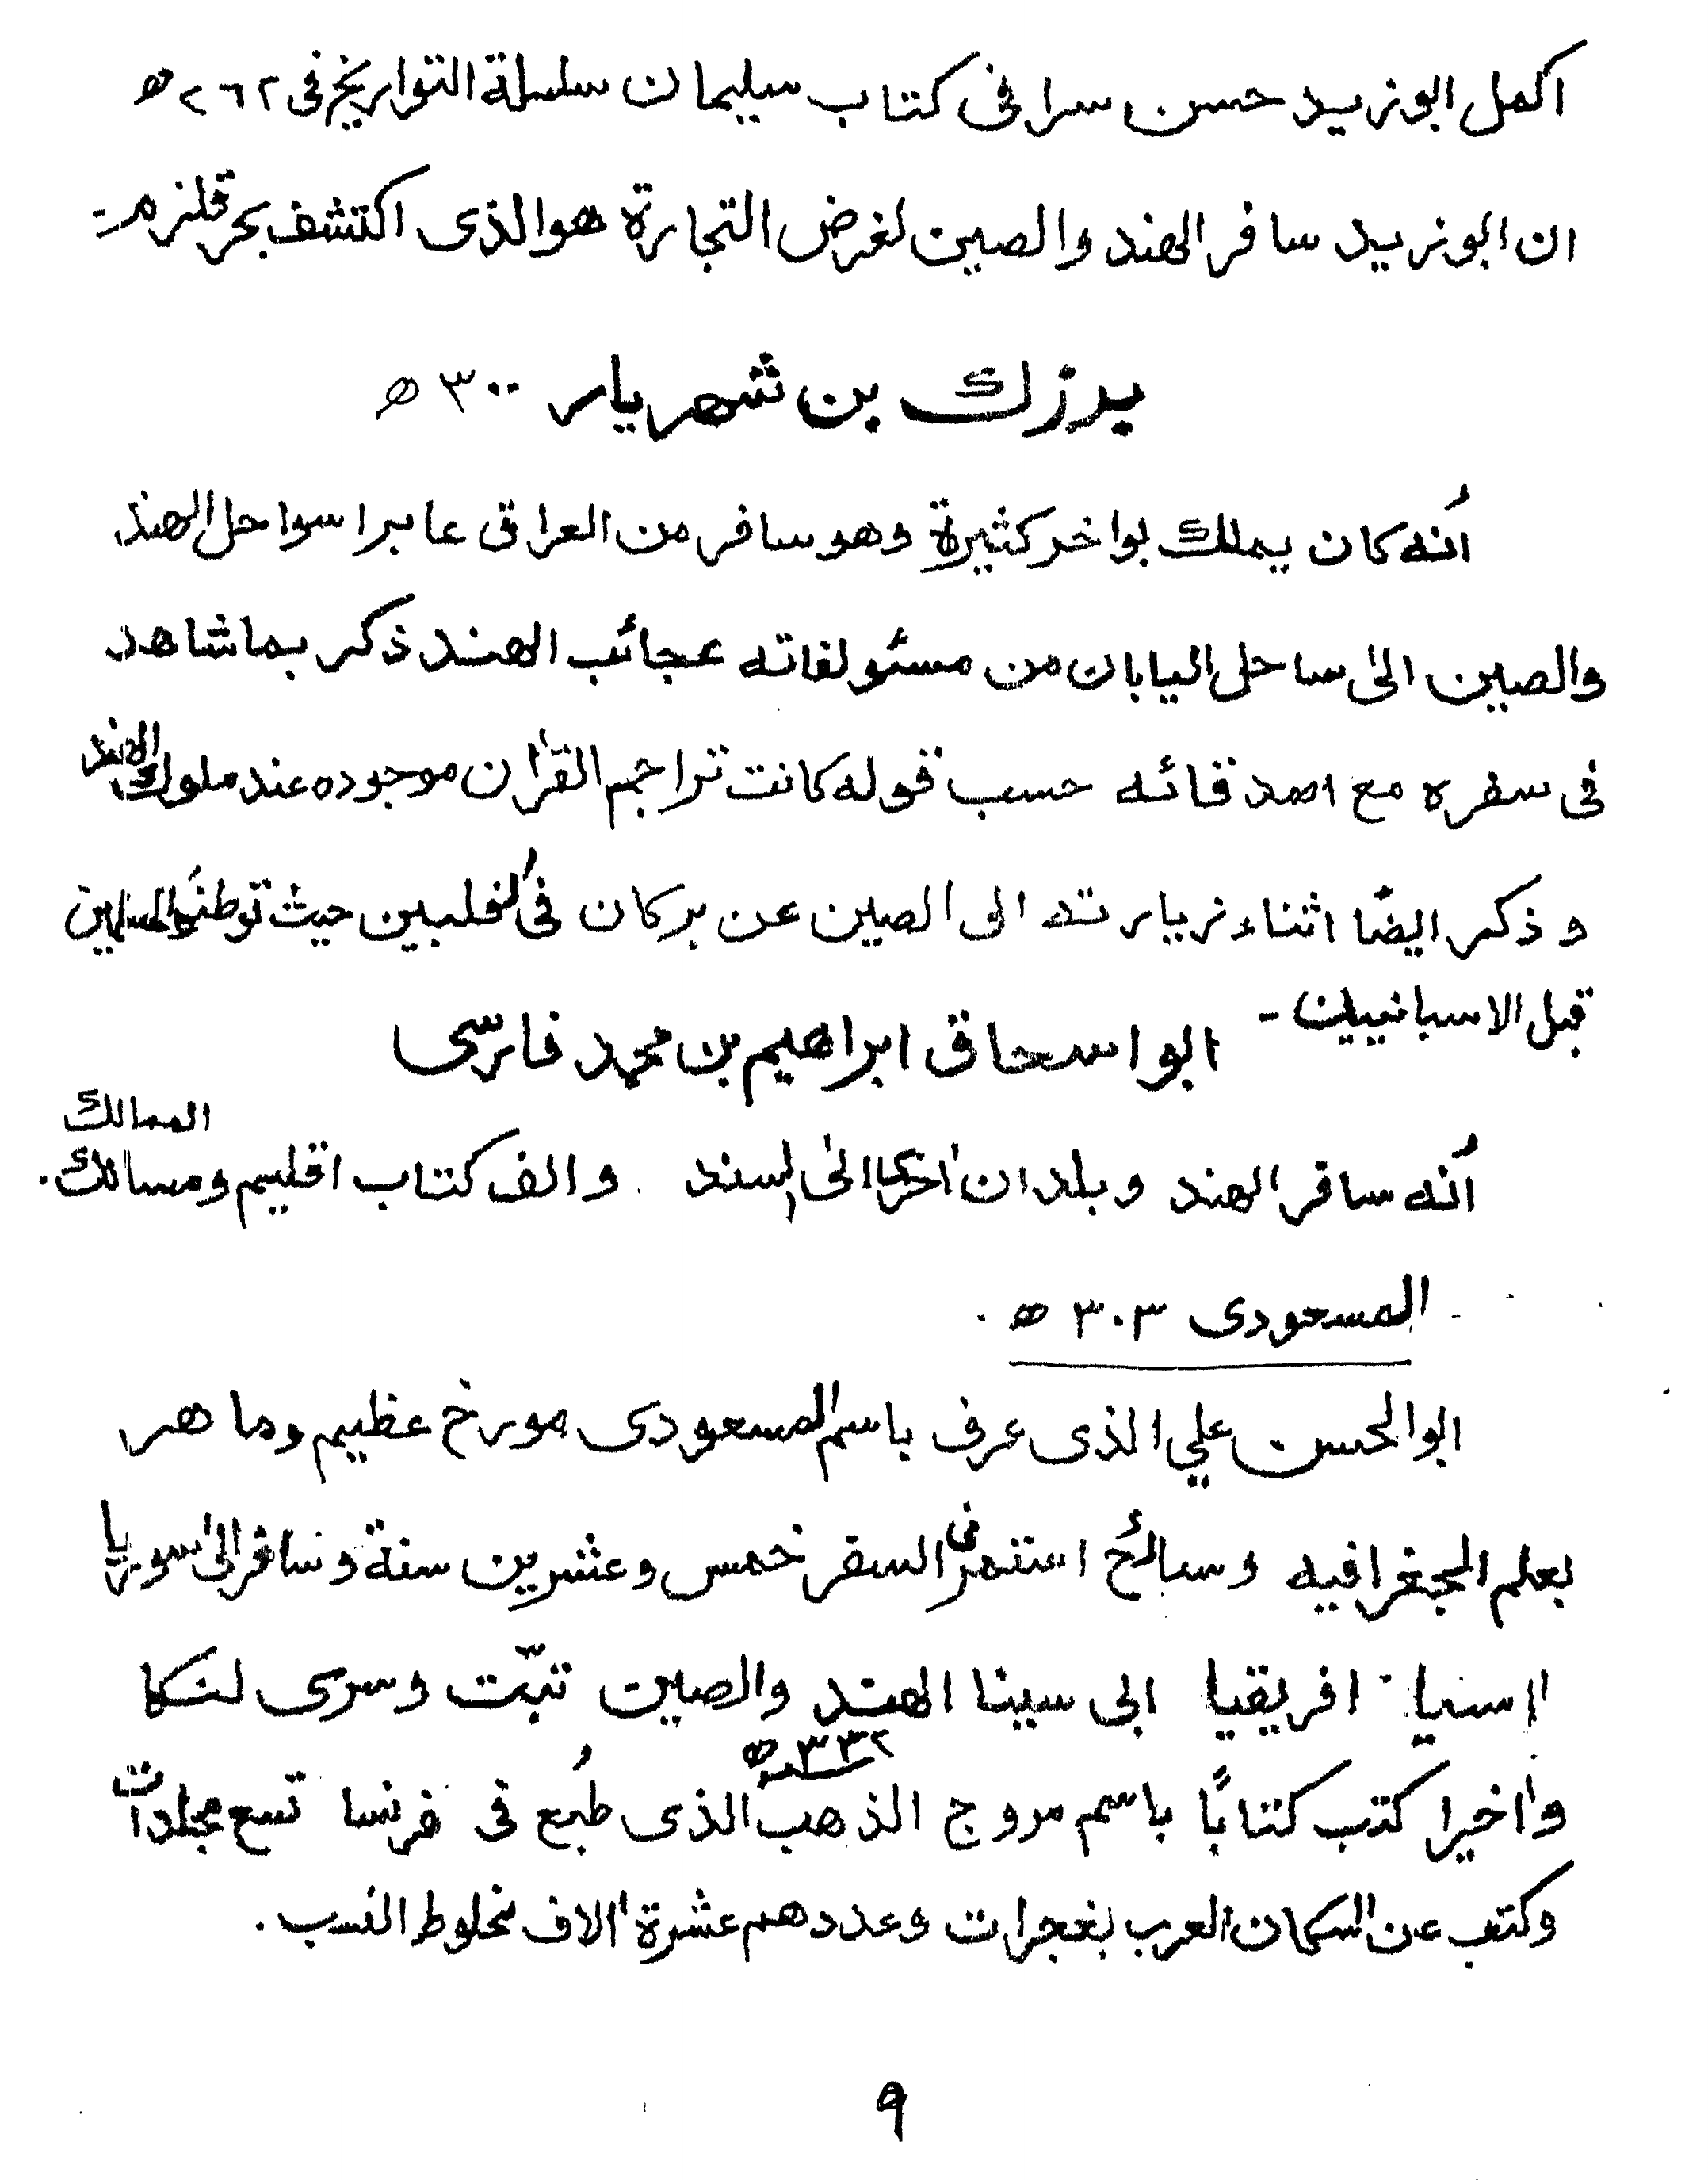 اكمل ابو زيد حسن سرافى كتاب سليمان سلسلة التواريخ فى ٢٦٢ ھ
ان ابو زيد سافر الهند والصين لغرض التجارة هو الذى اكتشف بحر قلزم -
بزرك بن شهريار ٣٠٠ ھ
أنه كان يملك بواخر كثيرة وهو سافر من العراق عابرا سواحل الهند
والصين الى ساحل اليابان من مسئولفاته عجائب الهند ذكر بما شاهد
فى سفره مع اصدقائه حسب قوله كانت تراجم القرآن موجوده عند ملوك الهند
و ذكر ايضًا اثناء زيارته الى الصين عن بركان فى الفلبين حيث توطنو المسلمين
قبل الاسبانيين -
ابو اسحاق ابراهيم بن محمد فارسى
أنه سافر الهند و بلدان اخرى الى السند والف كتاب اقليم ومسالك الممالك.
المسعودى ٣٠٣ ھ
ابو الحسن علي الذى عرف باسم المسعودى مورخ عظيم وماهر
بعلم الجغرافيه وسائح استمر فى السفر خمس وعشرين سنة و سافر الى سوريا
اسيا افريقيا ابى سينا الهند والصين تبّت وسرى لنكا
واخيرا كتب كتابًا باسم مروج الذهب ٣٣٢ ھ الذى طُبع فى فرنسا تسع مجلدات
وكتب عن السكان العرب بغجرات وعددهم عشرة آلاف مخلوط النسب.
٩